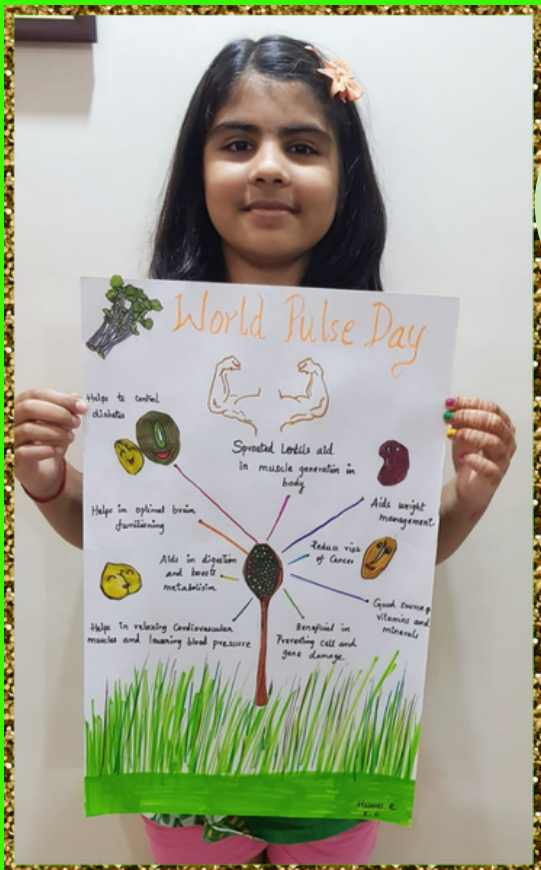 World Pulse Day
Helps to control
diabetes
Sprouted Lentils aid
in muscle generation in
body
Aids weight
management
Helps in optimal brain
functioning
Aids in digestion
and boosts
metabolism
Reduce risk
of Cancer
Good source of
vitamins and
minerals
Helps in relaxing Cardiovascular
muscles and lowering blood pressure
Beneficial in
Preventing cell and
gene damage